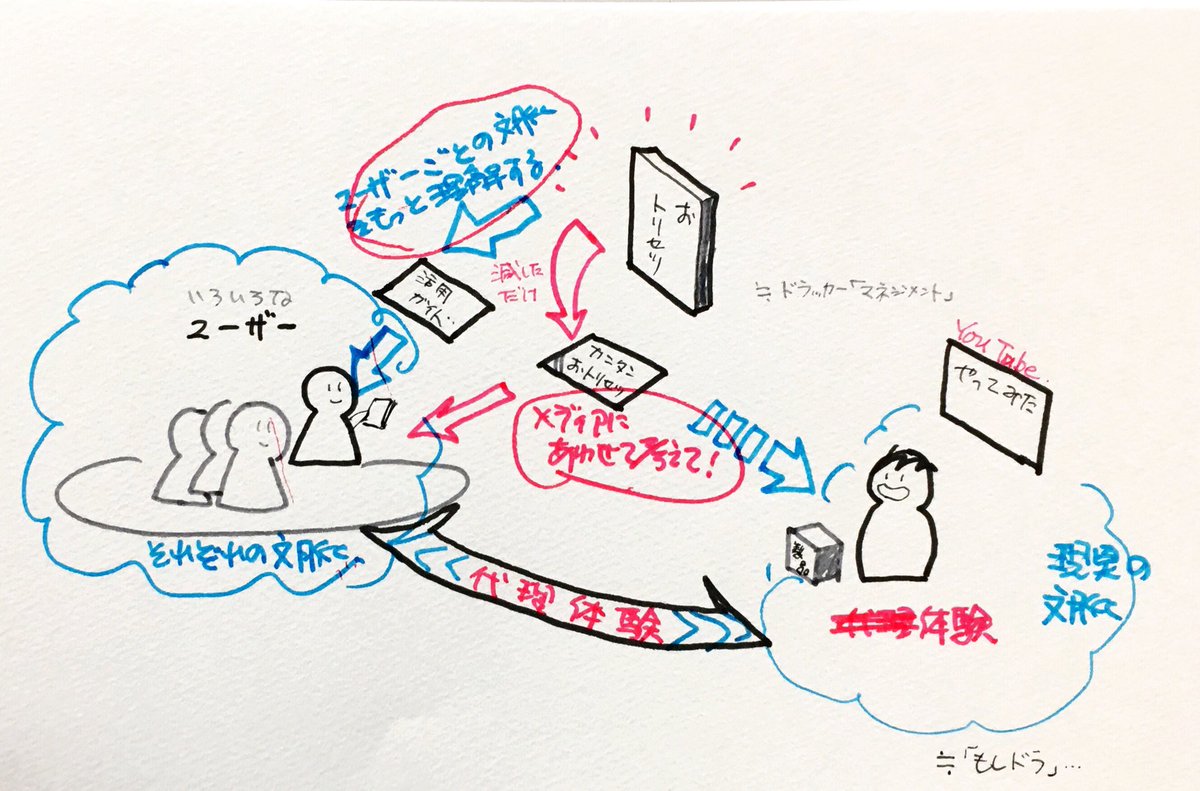 ユーザーごとの文脈に
もっと理解する
お
トリセツ
減した
だけ
活用
ガイド
いろいろな
ユーザー
≒ドラッカー「マネジメント」
カンタン
おトリセツ
YouTube
やってみた
メディアに
あわせて考えて!
製品
それぞれの文脈に
代理体験
体験
現実の
文脈に
≒「もしドラ」…